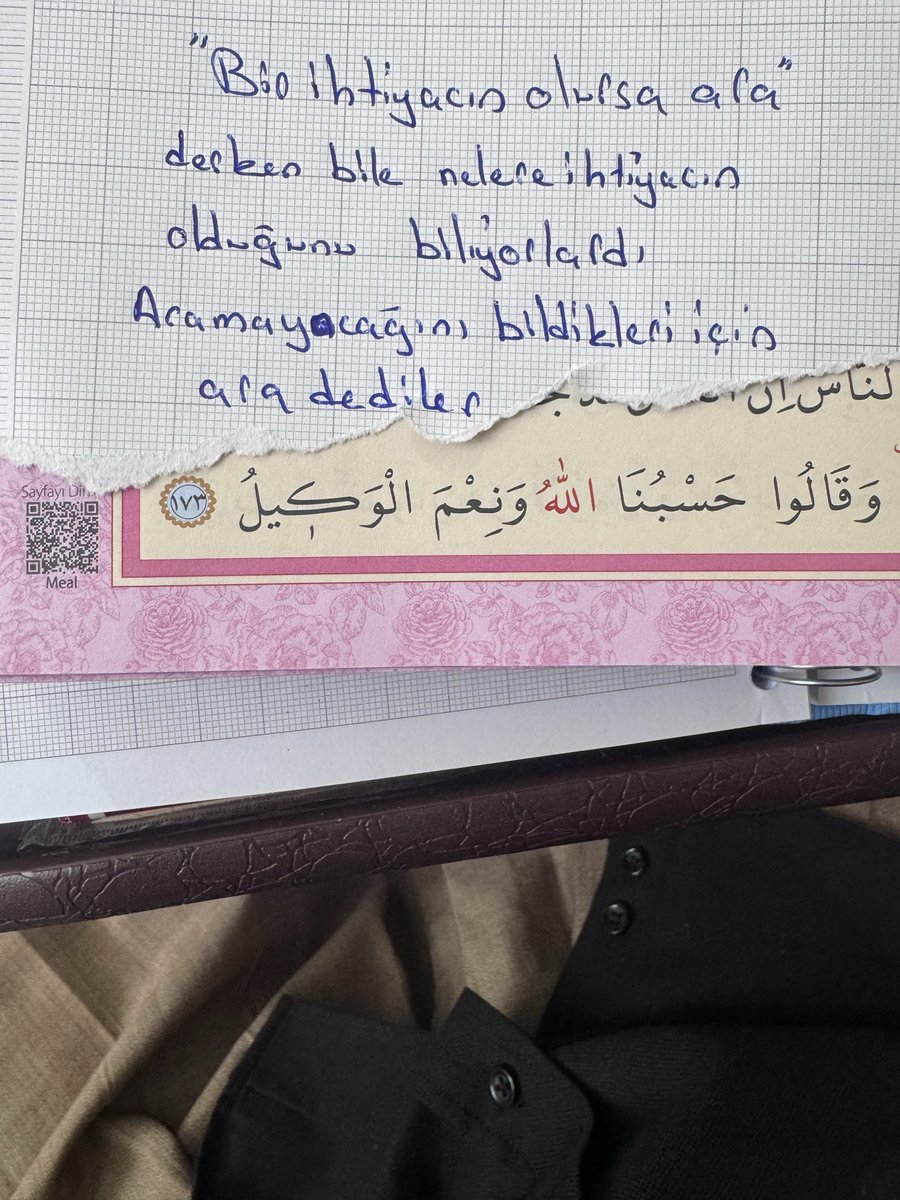 "Bio ihtiyacın olursa ara"
derken bile nelere ihtiyacın
olduğunu biliyorlardı
Aramayacağını bildikleri için
ara dediler
النَّاسَ اِنَّ
وَقَالُوا حَسْبُنَا اللّٰهُ وَنِعْمَ الْوَك۪يلُ ﴿١٧٣﴾
Sayfayı
Meal